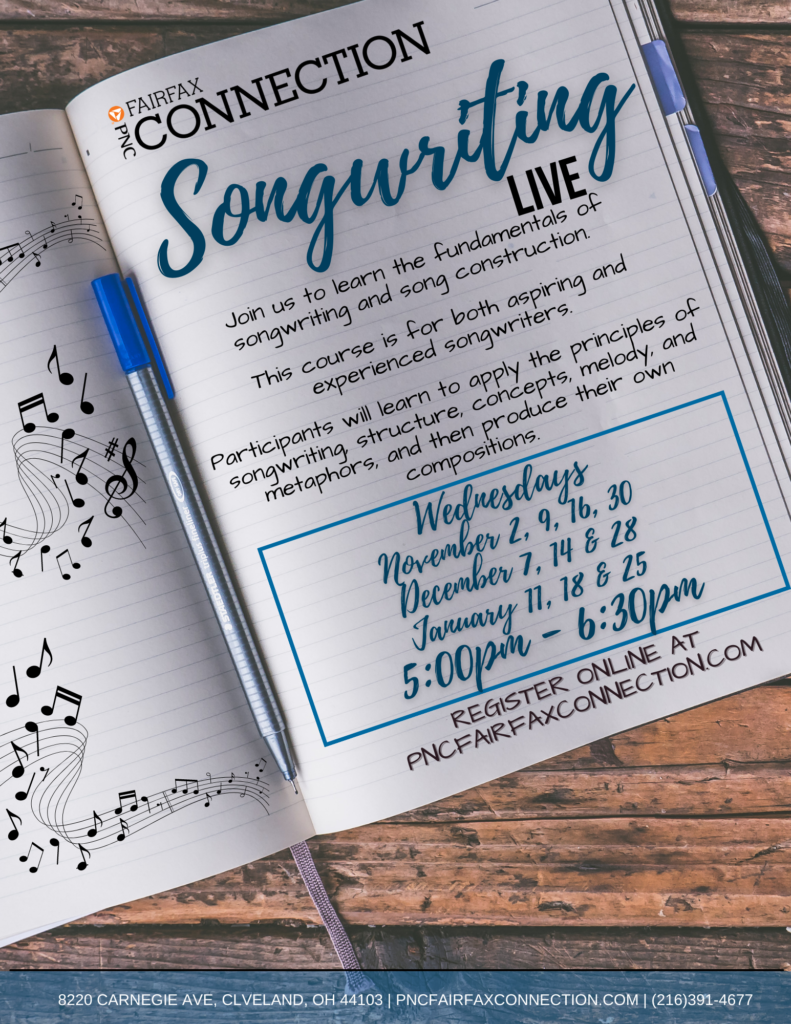 FAIRFAX
CONNECTION
PNC
Songwriting
LIVE
Join us to learn the fundamentals of
songwriting and song construction.
This course is for both aspiring and
experienced songwriters.
Participants will learn to apply the principles of
songwriting, structure, concepts, melody, and
metaphors, and then produce their own
compositions.
Wednesdays
November 2, 9, 16, 30
December 7, 14 & 28
January 11, 18 & 25
5:00pm - 6:30pm
REGISTER ONLINE AT
PNCFAIRFAXCONNECTION.COM
8220 CARNEGIE AVE, CLVELAND, OH 44103 | PNCFAIRFAXCONNECTION.COM | (216)391-4677